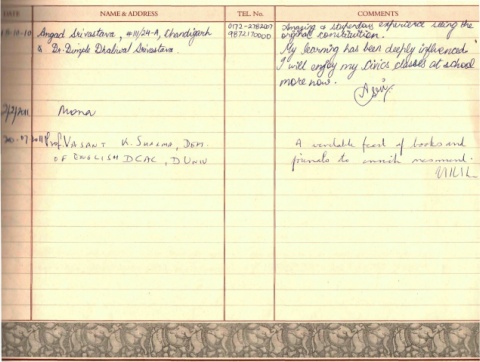 DATE NAME & ADDRESS TEL. No. COMMENTS
11-10-10 Angad Srivastava, #111/24-A, Chandigarh 0172-2782017 Amazing & stupendous experience seeing the
& Dr. Dimple Dhaliwal Srivastava. 9872170000 original constitution.
My learning has been deeply influenced
I will enjoy my Civics classes at school
more now.
2/2/2011 Mona
Prof. VASANT K. SHARMA, DEPT. A veritable feast of books and
OF ENGLISH DCAC, D UNIV journals to enrich